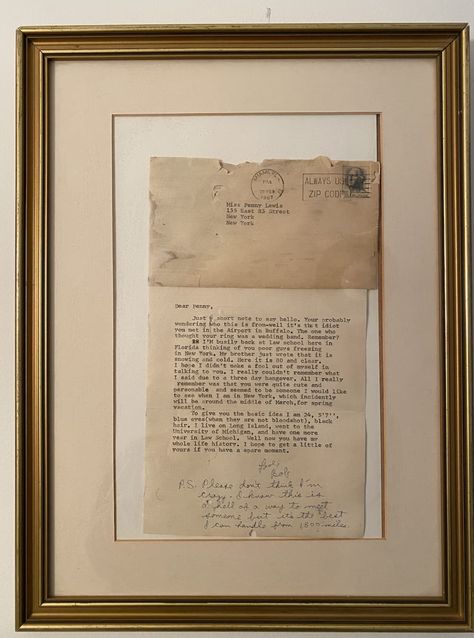 MIAMI, FLA.
1967
ALWAYS USE
ZIP CODE
Miss Penny Lewis
155 East 83 Street
New York
New York
Dear Penny,
Just a short note to say hello. Your probably
wondering who this is from-well it's that idiot
you met in the Airport in Buffalo. The one who
thought your ring was a wedding band. Remember?
I'M busily back at law school here in
Florida thinking of you poor guys freezing
in New York. My brother just wrote that it is
snowing and cold. Here it is 80 and clear.
I hope I didn't make a fool out of myself in
talking to you. I really couldn't remember what
I said due to a three day hangover. All I really
remember was that you were quite cute and
personable and seemed to be someone I would like
to see when I am in New York, which incidently
will be around the middle of March,for spring
vacation.
To give you the basic idea I am 24, 5'7'',
blue eyes(when they are not bloodshot), black
hair. I live on Long Island, went to the
University of Michigan, and have one more
year in Law School. Well now you have my
whole life history. I hope to get a little of
yours if you have a spare moment.
Bob
P.S. Please don't think I'm
crazy. I know this is
a hell of a way to meet
someone but it's the best
I can handle from 1500 miles.